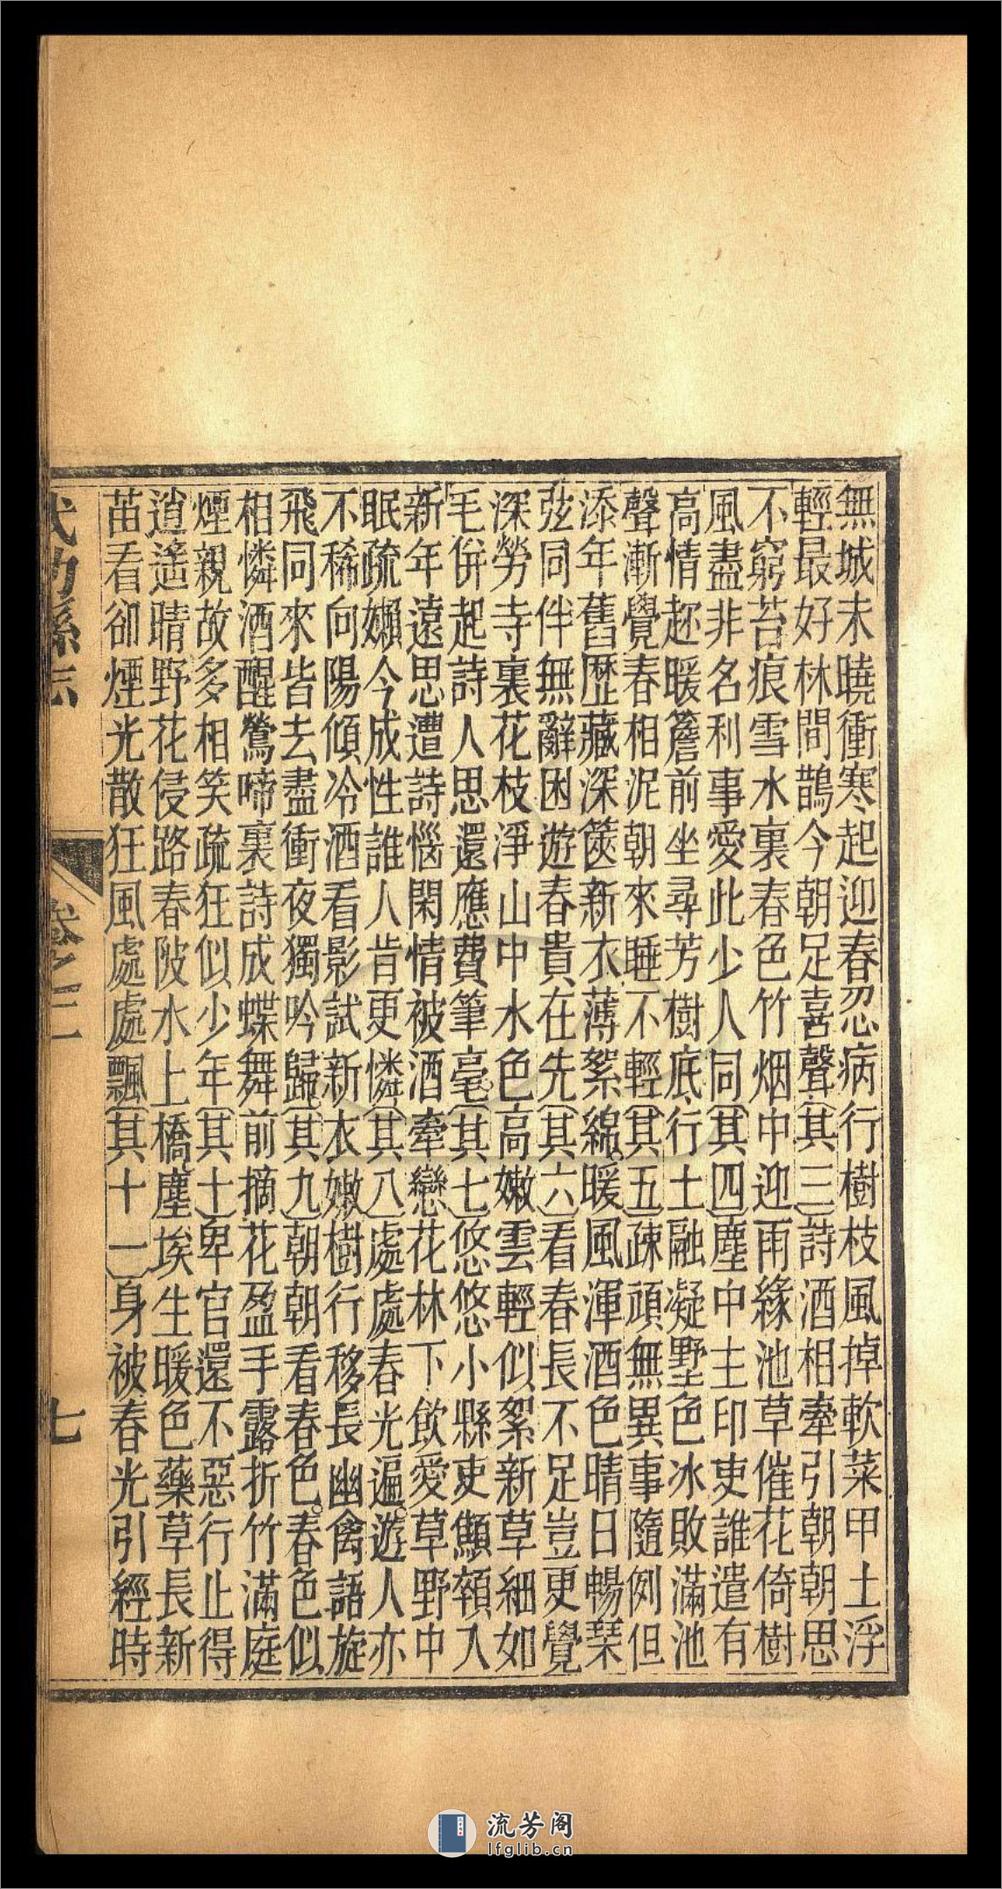 無城未曉衝寒起迎春忍病行樹枝風掉軟菜甲土浮
輕最好林間鵲今朝足喜聲其三詩酒相牽引朝朝思
不窮苔痕雪水裏春色竹烟中迎雨緣池草催花倚樹
風盡非名利事愛此少人同其四塵中主印吏誰遣有
高情趁暖簷前坐尋芳樹底行土融凝墅色冰敗滿池
聲漸覺春相泥朝來睡不輕其五疎頑無異事隨例但
添年舊歷藏深篋新衣薄絮綿暖風渾酒色晴日暢琹
弦同伴無辭困遊春貴在先其六看春長不足豈更覺
深勞寺裏花枝淨山中水色高嫩雲輕似絮新草細如
毛併起詩人思還應費筆毫其七悠悠小縣吏顦顇入
新年遠思遭詩惱閑情被酒牽戀花林下飲愛草野中
眠疏嬾今成性誰人肯更憐其八處處春光遍遊人亦
不稀向陽傾冷酒看影試新衣嫩樹行移長幽禽語旋
飛同來皆去盡衝夜獨吟歸其九朝朝看春色春色似
相憐酒醒鶯啼裏詩成蝶舞前摘花盈手露折竹滿庭
煙親故多相笑疏狂似少年其十卑官還不惡行止得
逍遙晴野花侵路春陂水上橋塵埃生暖色藥草長新
苗看卻煙光散狂風處處飄其十一身被春光引經時
武功縣志 卷之二 七
流芳阁
lfglib.cn